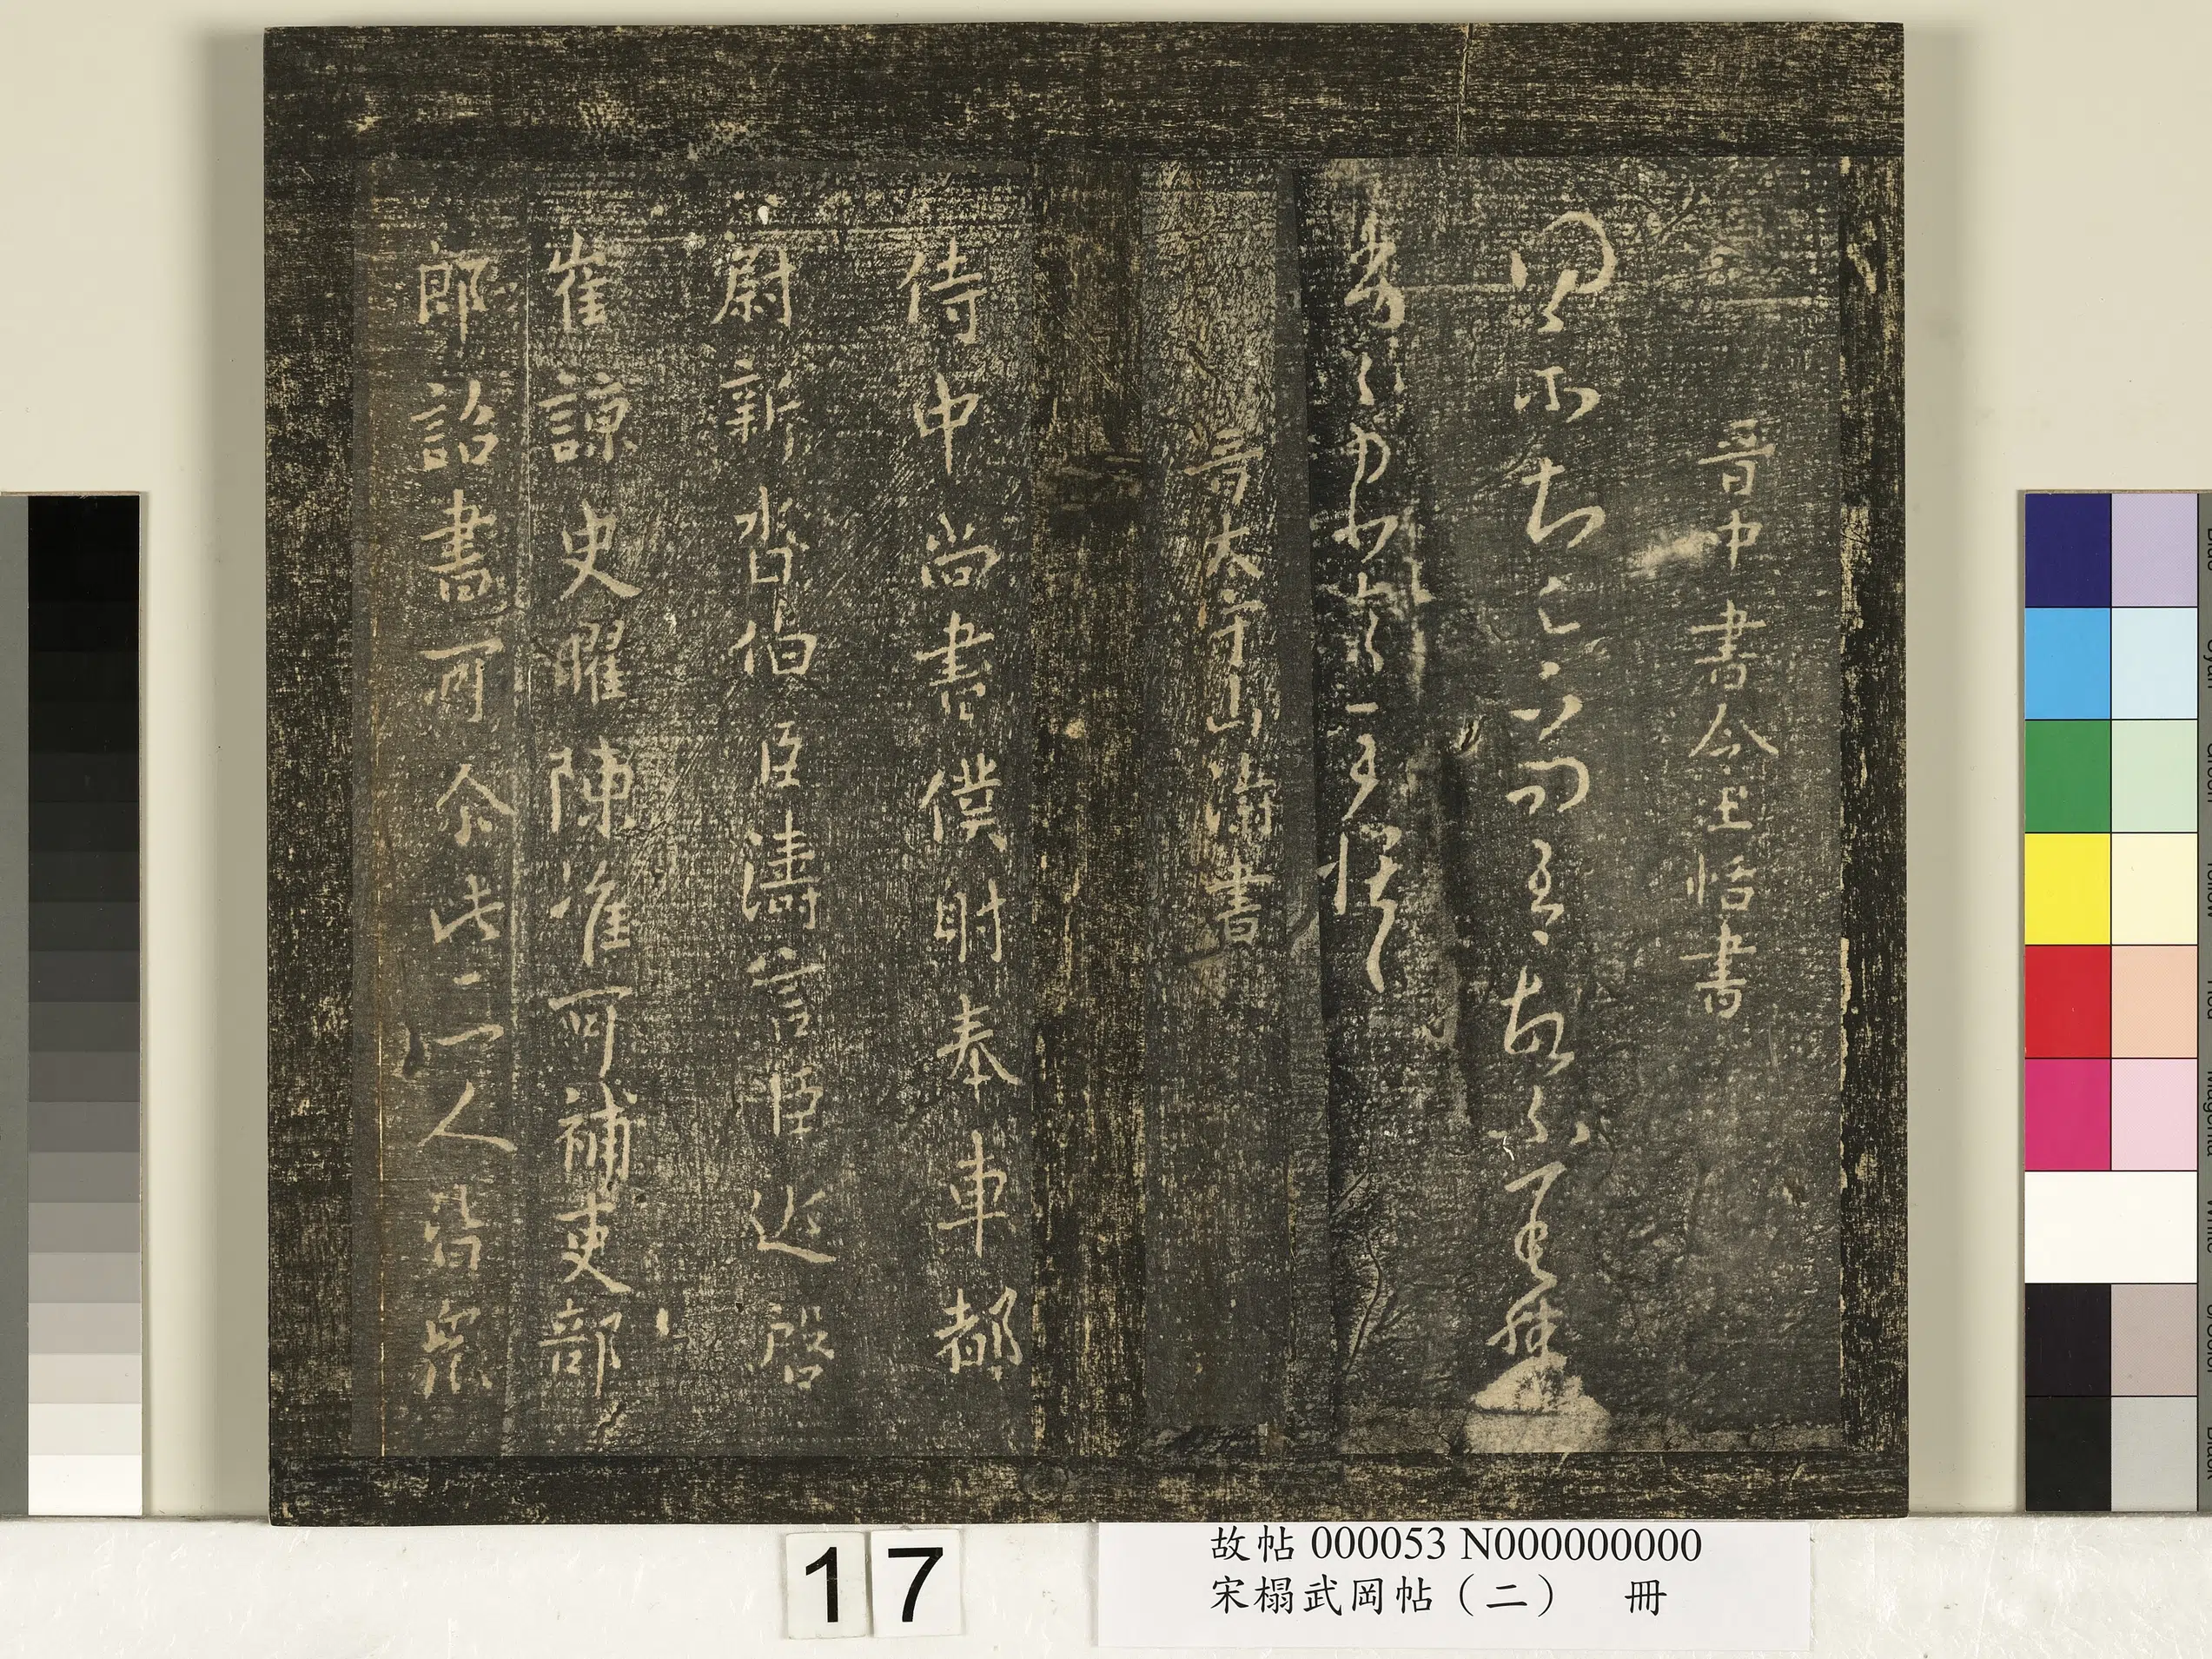 晉中書令王恬書
示知足下問吾故不
王恬
晉太守山濤書
侍中尚書僕射奉車都
尉新沓伯臣濤言臣近啓
崔諒史曜陳准可補吏部
郎詔書可尒此三人皆眾
17
故帖 000053 N000000000
宋榻武岡帖（二） 冊